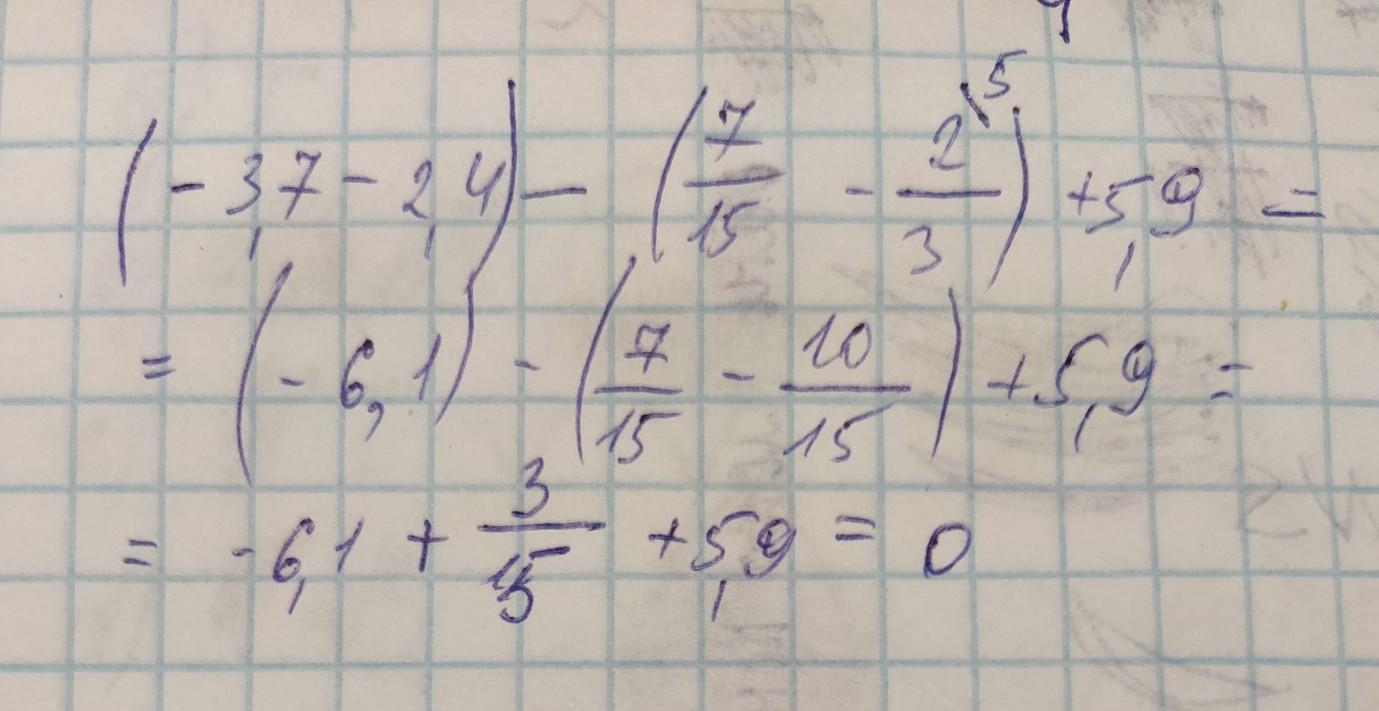 (-3,7-2,4)-(7/15-2\5/3)+5,9=
=(-6,1)-(7/15-10/15)+5,9=
=-6,1+3/15+5,9=0